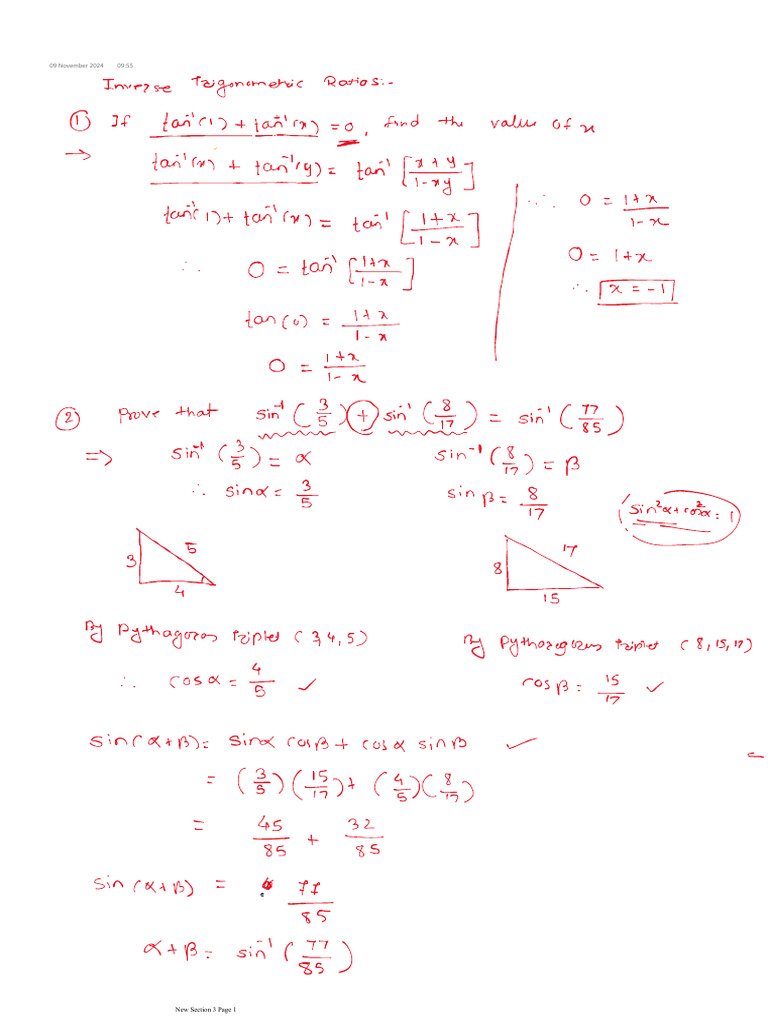 09 November 2024 09:55
Inverse Trigonometric Ratios:-
① If tan⁻¹(1) + tan⁻¹(x) = 0, find the value of x
→ tan⁻¹(x) + tan⁻¹(y) = tan⁻¹ [x+y / 1-xy]
tan⁻¹(1) + tan⁻¹(x) = tan⁻¹ [1+x / 1-x]
∴ 0 = tan⁻¹ [1+x / 1-x]
tan(0) = 1+x / 1-x
0 = 1+x / 1-x
∴ 0 = 1+x / 1-x
0 = 1+x
∴ x = -1
② Prove that sin⁻¹(3/5) + sin⁻¹(8/17) = sin⁻¹(77/85)
⇒ sin⁻¹(3/5) = α sin⁻¹(8/17) = β
∴ sinα = 3/5 sinβ = 8/17
(sin²α + cos²α = 1
3 5 4
8 17 15
By Pythagoros triplet (3,4,5)
∴ cosα = 4/5 ✓
By Pythoregorus triplet (8,15,17)
cosβ = 15/17 ✓
sin(α+β) = sinα cosβ + cosα sinβ ✓
= (3/5)(15/17) + (4/5)(8/17)
= 45/85 + 32/85
sin(α+β) = 77/85
α+β = sin⁻¹(77/85)
New Section 3 Page 1